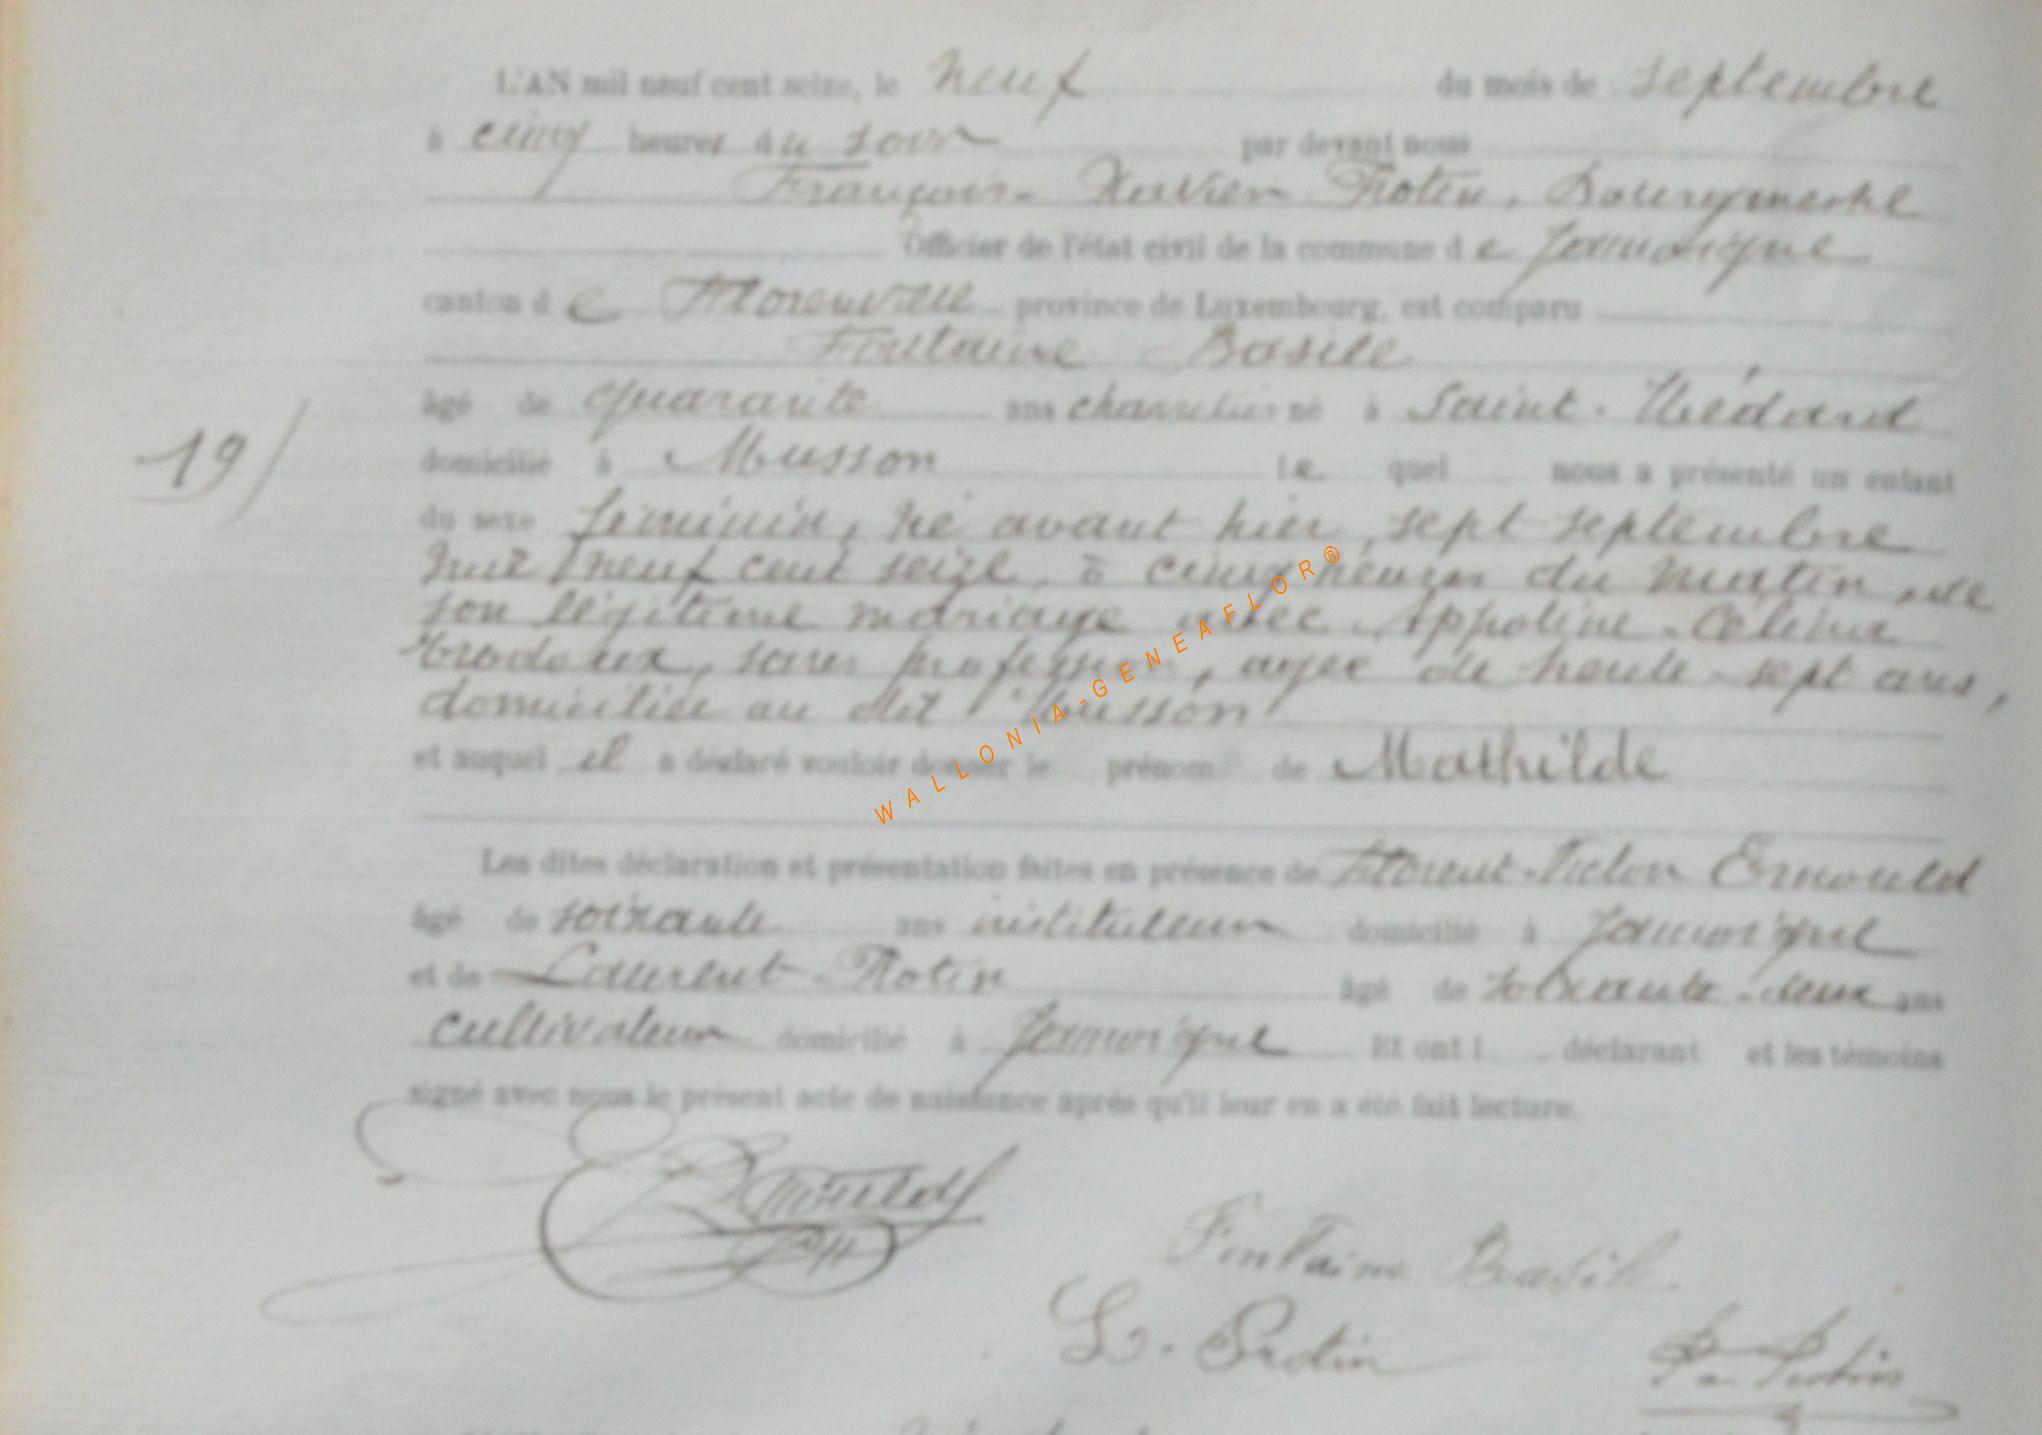 L'AN mil neuf cent seize, le neuf du mois de septembre
à cinq heures du soir par devant nous
François-Xavier Protin, Bourgmestre
Officier de l'état civil de la commune de Jamoigne
canton de Florenville province de Luxembourg, est comparu
Fontaine Basile
âgé de quarante ans charretier né à Saint-Médard
domicilié à Musson lequel nous a présenté un enfant
19/
du sexe féminin, né avant hier, sept septembre
mil neuf cent seize à cinq heures du matin, de
son légitime mariage avec Appoline-Célina
sans profession, agée de trente-sept ans,
domiciliée au dit Musson
et auquel il a déclaré vouloir donner le prénom de Mathilde
Les dites déclaration et présentation faites en présence de Florent-Victor Ernould
âgé de soixante ans instituteur domicilié à Jamoigne
et de Laurent Protin âgé de soixante-deux ans
cultivateur domicilié à Jamoigne Et ont l déclarant et les témoins
signé avec nous le présent acte de naissance après qu'il leur en a été fait lecture.
Ernould
Fontaine Basile
L. Protin
WALLONIA-GENEAFLOR®